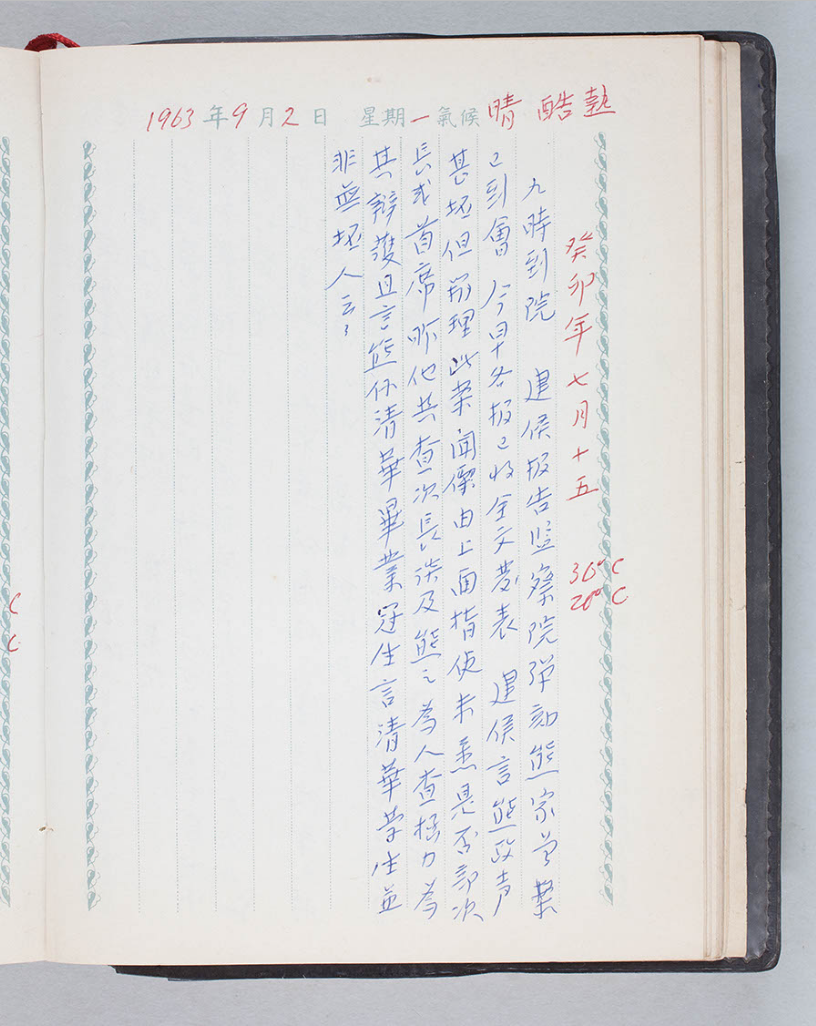 1963年9月2日 星期一 氣候 晴 酷熱
癸卯年七月十五
36°C
20°C
九時到院 建侯报告监察院弹劾熊家 案
已到會 今早各报已收全文发表 建侯言熊政声
甚坏但办理此案闻係由上面指使未悉是否部次
長或首席 他其查次長谈及熊之為人查极力為
其辯護且言熊係清華畢業冠生言清華学生並
非無坏人云云
C
C